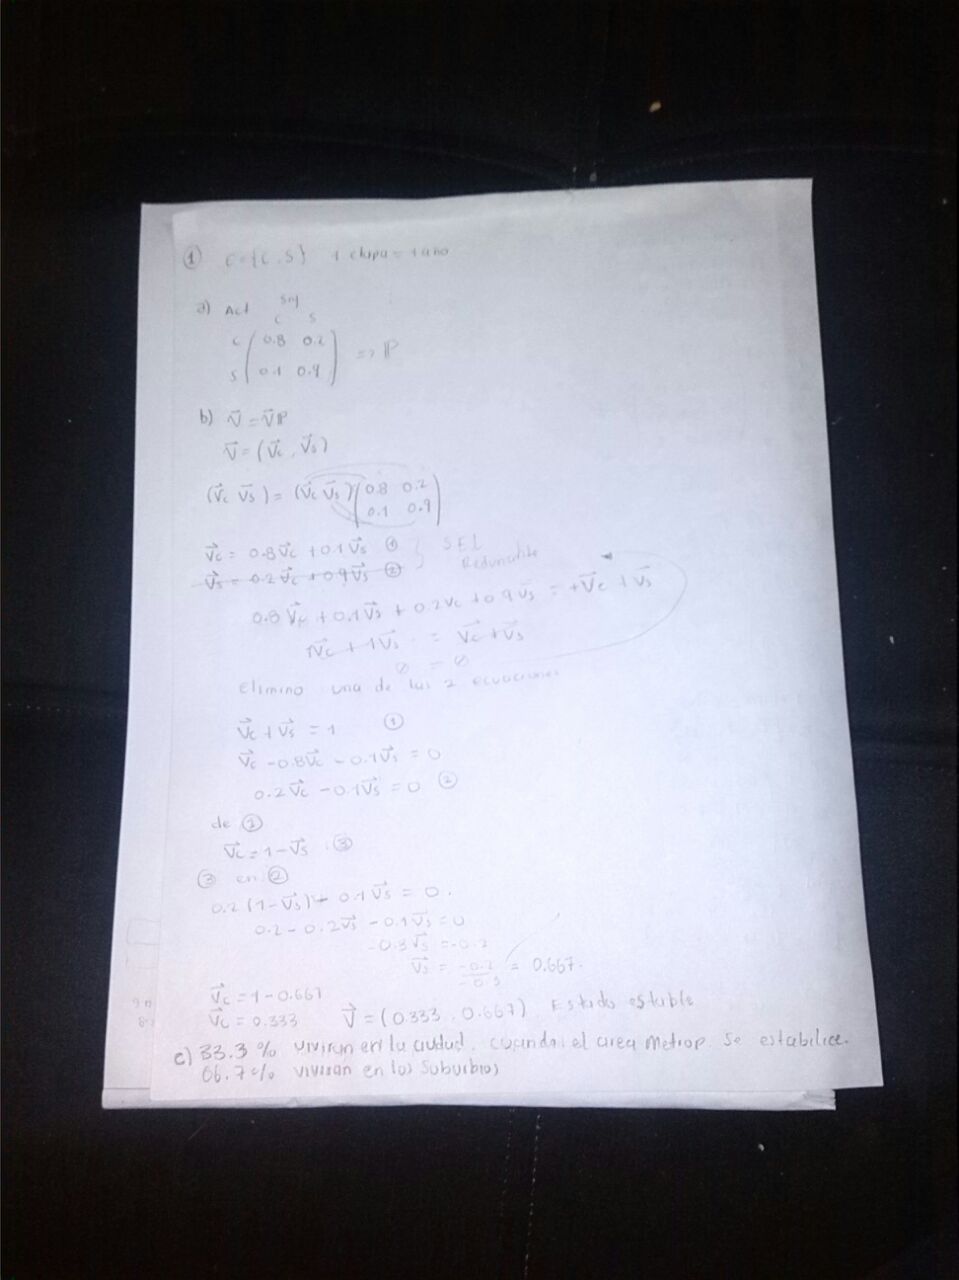 ① E={C, S} 1 etapa = 1 año
a) Act Sig
C S
C 0.8 0.2
S 0.1 0.9 => ℙ
b) V⃗ = V⃗ℙ
V⃗ = (V⃗c, V⃗s)
(V⃗c V⃗s) = (V⃗c V⃗s) (0.8 0.2
0.1 0.9)
V⃗c = 0.8V⃗c + 0.1V⃗s ① } SEL
V⃗s = 0.2V⃗c + 0.9V⃗s ② Redundante
0.8V⃗c + 0.1V⃗s + 0.2Vc + 0.9V⃗s = +V⃗c + V⃗s
1V⃗c + 1V⃗s = V⃗c + V⃗s
0 = 0
elimino una de las 2 ecuaciones
V⃗c + V⃗s = 1 ①
V⃗c - 0.8V⃗c - 0.1V⃗s = 0
0.2V⃗c - 0.1V⃗s = 0 ②
de ①
V⃗c = 1 - V⃗s ③
③ en ②
0.2(1-V⃗s) - 0.1V⃗s = 0.
0.2 - 0.2V⃗s - 0.1V⃗s = 0
-0.3V⃗s = -0.2
V⃗s = -0.2/-0.3 = 0.667.
V⃗c = 1 - 0.667
V⃗c = 0.333 V⃗ = (0.333, 0.667) Estado estable
c) 33.3 % vivirán en la ciudad, cuando el area Metrop. se estabilice.
66.7% vivirán en los Suburbios